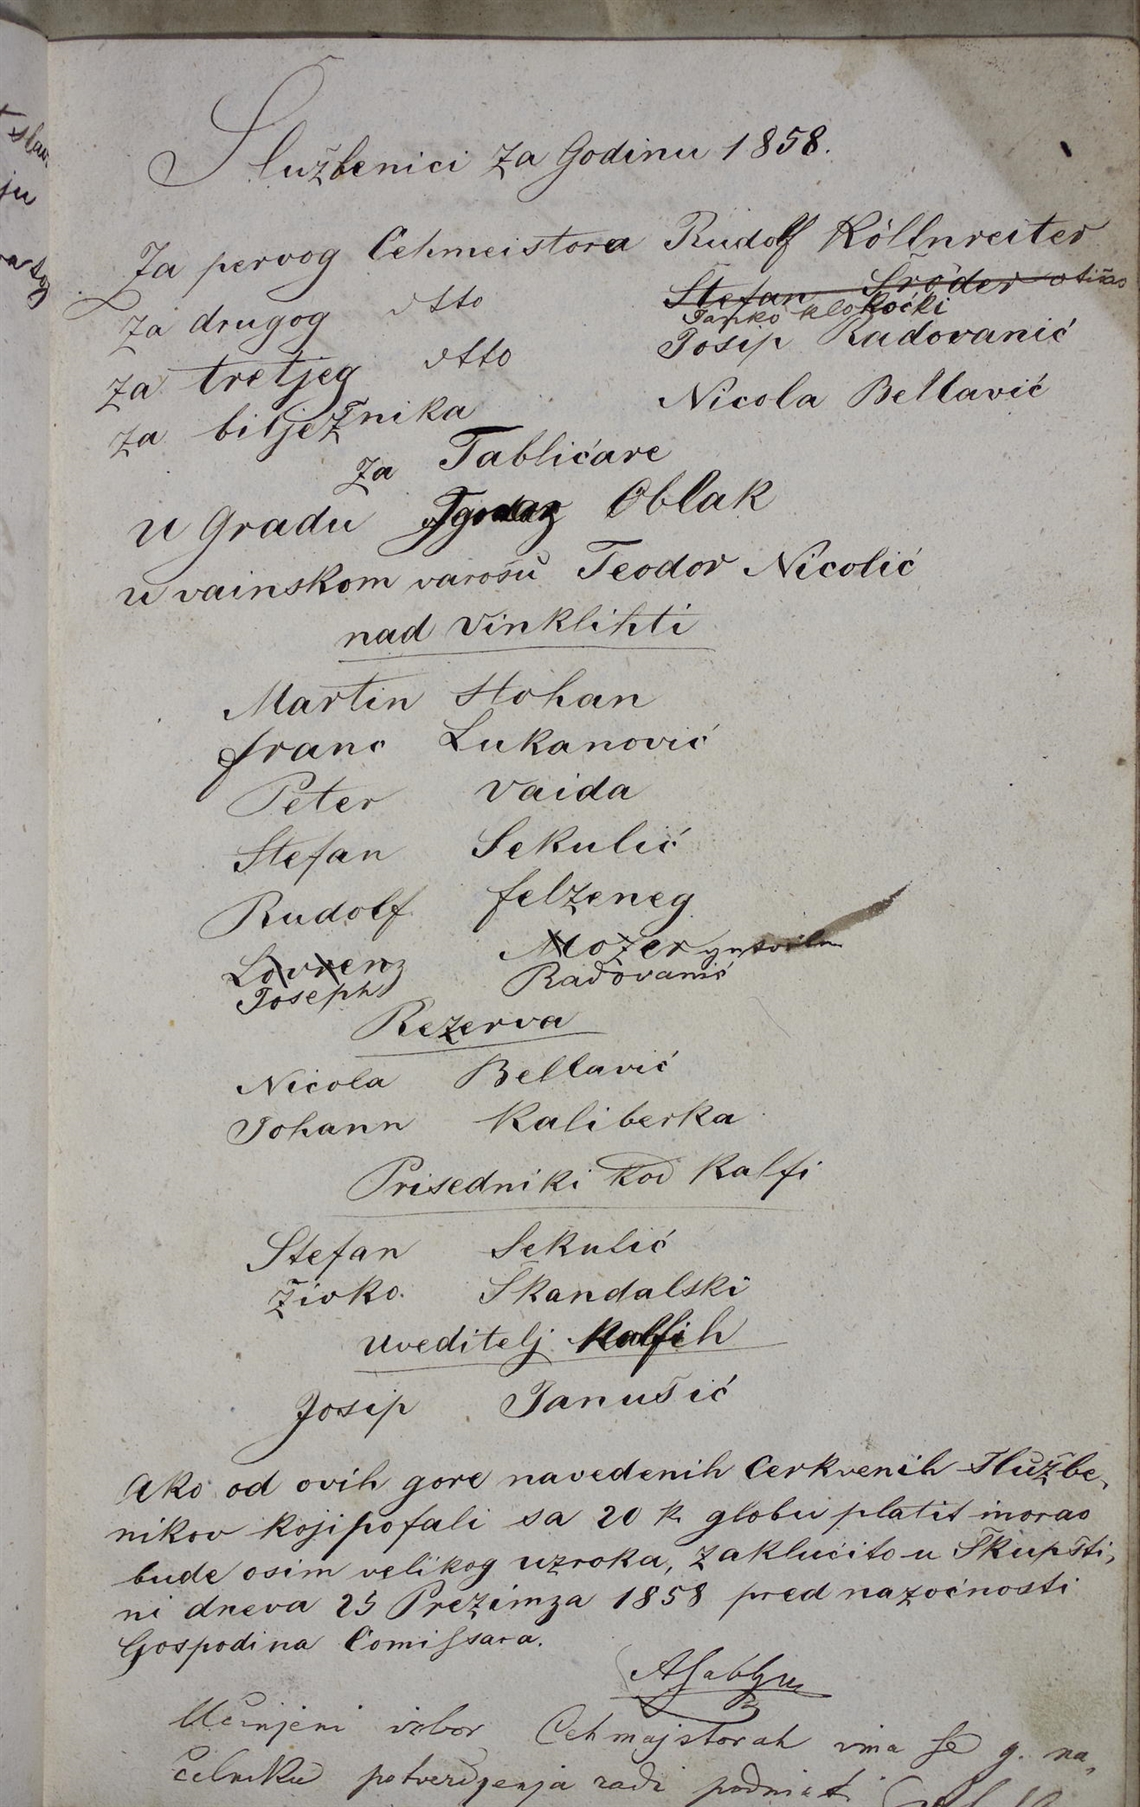 Službenici za Godinu 1858.
Za pervog Cehmeistora Rudolf Köllnreiter
Za drugog dtto Stefan Šröder
Janko Klokočki
za tretjeg dtto Josip Radovanić
za bilježnika Nicola Bellavić
za Tablićare
u Gradu Ignaz Oblak
u vainskom varošu Teodor Nicolić
nad vinklihti
Martin Stohan
franc Lukanović
Peter Vaida
Stefan Sekulić
Rudolf felzeneg
Lovrenz Mozer
Joseph Radovanić
Rezerva
Nicola Bellavić
Johann Kaliberka
Prisedniki kod Kalfi
Stefan Sekulić
Živko Škandalski
uveditelj Kalfih
Josip Janušić
Ako od ovih gore navedenih Cerkvenih Službe,
nikov koji pofali sa 20 k. globu platit morao
bude osim velikog uzroka, zaklućito u Skupšti,
ni dneva 25 Prezimza 1858 pred nazoćnosti
Gospodina Comissara.
Učinjeni izbor Cehmajstorah ima se g. na,
čelniku potverdjenja radi podnieti